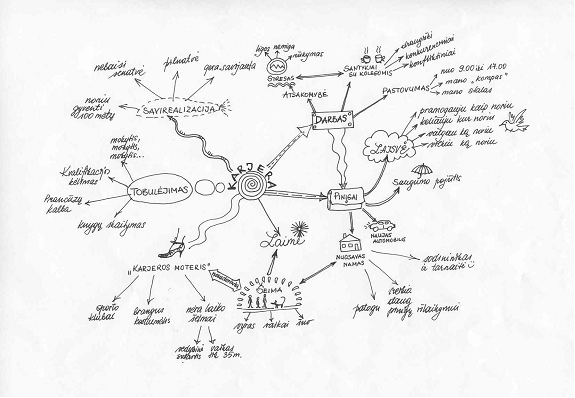 pilnatvė
gera savijauta
noriu
gyventi
100 metų
SAVIREALIZACIJA
mokytis,
mokytis,
mokytis...
Kvalifikacijos
kėlimas
Prancūzų
kalba
knygų skaitymas
TOBULĖJIMAS
KARJERA
ligos
nemiga
rūkymas
STRESAS
ATSAKOMYBĖ
DARBAS
SANTYKIAI
SU KOLEGOMIS
draugiški
konkurenciniai
konfliktiniai
PASTOVUMAS
nuo 9.00 iki 17.00
mano „kompas"
mano stalas
LAISVĖ
pramogauju kaip noriu
keliauju kur noriu
valgau ką noriu
veikiu ką noriu
Saugumo pojūtis
PINIGAI
NAUJAS
AUTOMOBILIS
NUOSAVAS
NAMAS
sodininkas
ir tarnaitė
patogu
reikia
daug
pinigų
išlaikymui
Laimė
ŠEIMA
vyras
vaikai
šuo
„KARJEROS MOTERIS"
sporto
klubai
brangus
kostiumėlis
nėra laiko
šeimai
vaikas
35 m.